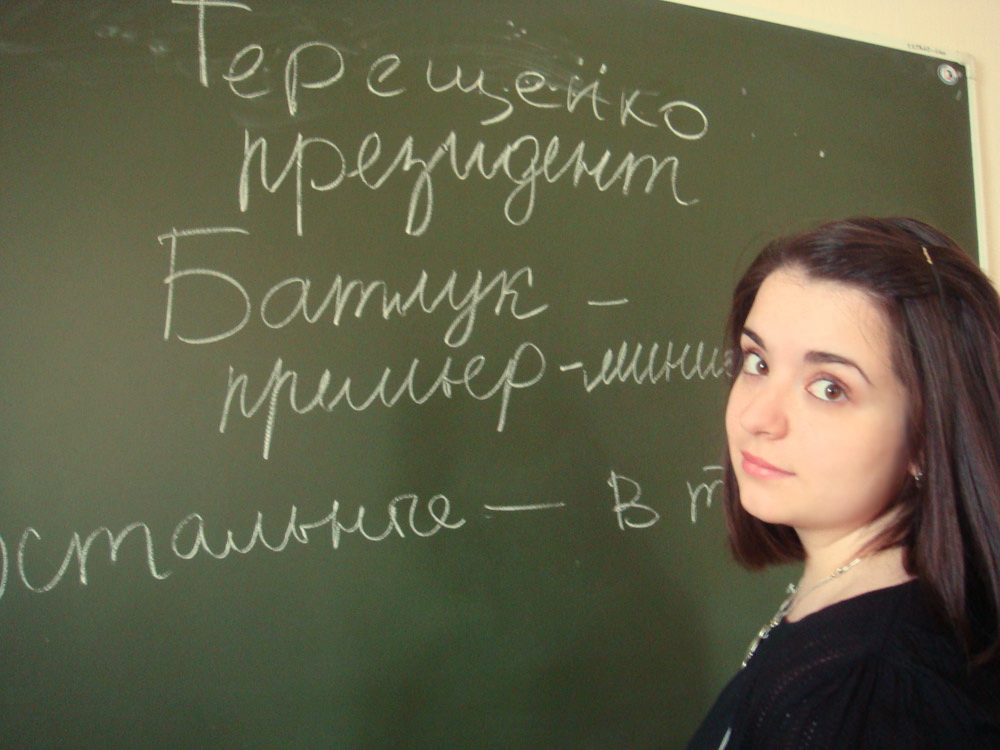 Терещенко
президент
Батлук –
премьер-мини
остальные — в т